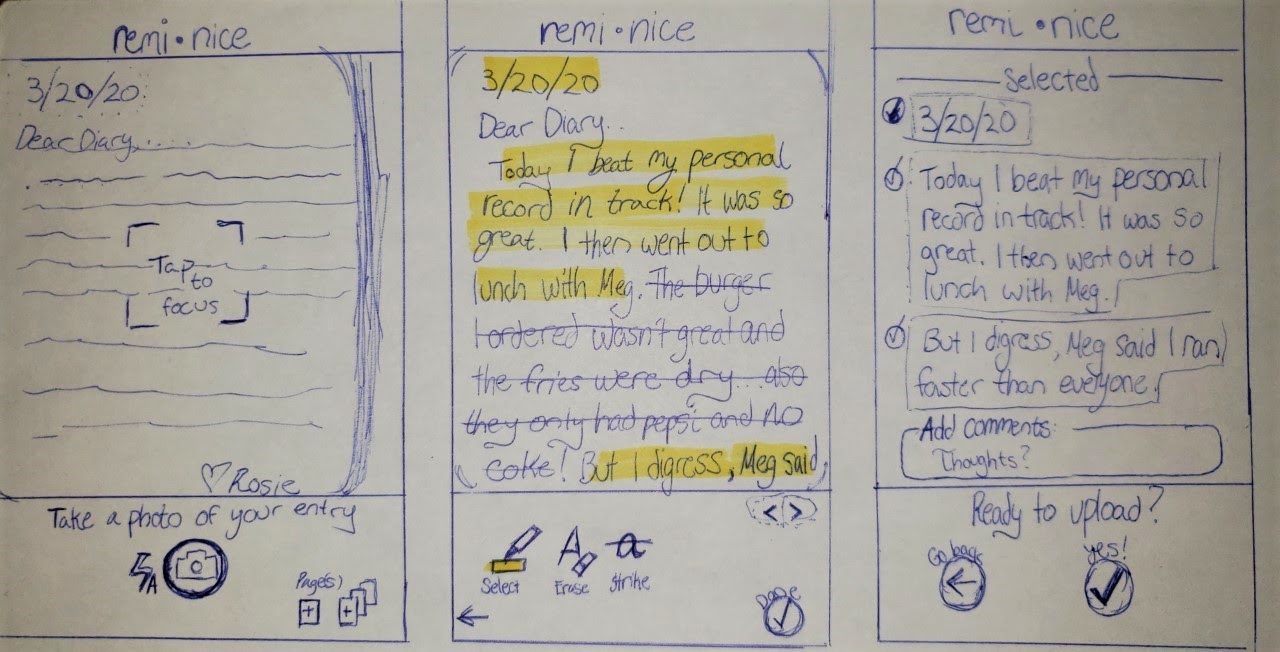 remi•nice
3/20/20
Dear Diary.....
Tap to
focus
♡Rosie
Take a photo of your entry
A
Page(s)
+
+
remi•nice
3/20/20
Dear Diary..
Today I beat my personal
record in track! It was so
great. I then went out to
lunch with Meg. The burger
I ordered wasn't great and
the fries were dry... also
they only had pepsi and no
coke! But I digress, Meg said
< | >
A
a
Select
Erase
Strike
Done
remi•nice
Selected
3/20/20
Today I beat my personal
record in track! It was so
great. I then went out to
lunch with Meg.
But I digress, Meg said I ran
faster than everyone.
Add comments:
Thoughts?
Ready to upload?
Go back
yes!